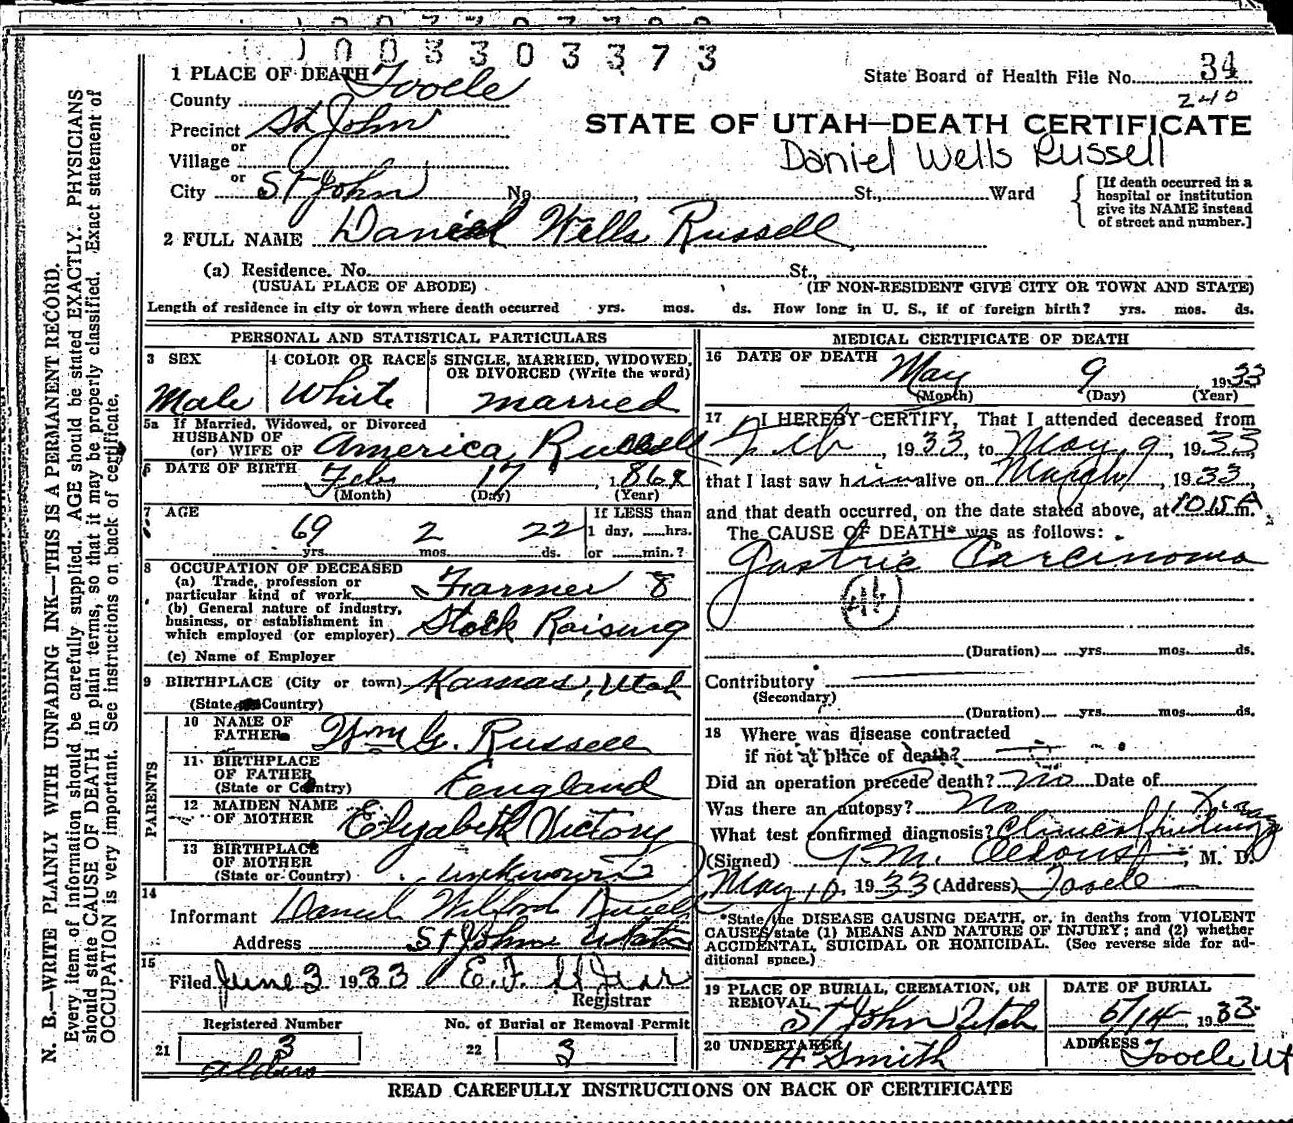 003303373
1 PLACE OF DEATH
State Board of Health File No. 34
County Tooele
240
Precinct St John
STATE OF UTAH—DEATH CERTIFICATE
or
Village
Daniel Wells Russell
or
City St John No. , St., Ward
[If death occurred in a
hospital or institution
give its NAME instead
of street and number.]
2 FULL NAME Daniel Wells Russell
(a) Residence. No. St.,
(USUAL PLACE OF ABODE) (IF NON-RESIDENT GIVE CITY OR TOWN AND STATE)
Length of residence in city or town where death occurred yrs. mos. ds. How long in U. S., if of foreign birth? yrs. mos. ds.
PERSONAL AND STATISTICAL PARTICULARS
3 SEX 4 COLOR OR RACE 5 SINGLE, MARRIED, WIDOWED,
OR DIVORCED (Write the word)
Male White married
5a If Married, Widowed, or Divorced
HUSBAND OF
(or) WIFE OF America Russell
6 DATE OF BIRTH Feb 17, 186
(Month) (Day) (Year)
7 AGE If LESS than
69 2 22 1 day, hrs.
yrs. mos. ds. or min.?
8 OCCUPATION OF DECEASED
(a) Trade, profession or
particular kind of work Farmer 8
(b) General nature of industry,
business, or establishment in
which employed (or employer) Stock Raising
(c) Name of Employer
9 BIRTHPLACE (City or town) Kamas, Utah
(State or Country)
PARENTS
10 NAME OF
FATHER Wm G. Russell
11 BIRTHPLACE
OF FATHER
(State or Country) England
12 MAIDEN NAME
OF MOTHER Elyzabeth Victory
13 BIRTHPLACE
OF MOTHER
(State or Country) unknown
14
Informant Daniel Wilford Russell
Address St Johns Utah
15
Filed June 3 1933 E. F.
Registrar
Registered Number No. of Burial or Removal Permit
21 3 22 3
MEDICAL CERTIFICATE OF DEATH
16 DATE OF DEATH May 9, 1933
(Month) (Day) (Year)
17 I HEREBY CERTIFY, That I attended deceased from
Feb, 1933, to May 9, 1933,
that I last saw him alive on, 1933,
and that death occurred, on the date stated above, at 1015 A m.
The CAUSE OF DEATH* was as follows:
Gastric Carcinoma
(Duration) yrs. mos. ds.
Contributory
(Secondary)
(Duration) yrs. mos. ds.
18 Where was disease contracted
if not at place of death?
Did an operation precede death? No Date of
Was there an autopsy? No
What test confirmed diagnosis? Clinical findings Xray
(Signed) , M. D.
May 10, 1933 (Address) Tooele
*State the DISEASE CAUSING DEATH, or, in deaths from VIOLENT
CAUSES, state (1) MEANS AND NATURE OF INJURY; and (2) whether
ACCIDENTAL, SUICIDAL OR HOMICIDAL. (See reverse side for ad-
ditional space.)
19 PLACE OF BURIAL, CREMATION, OR
REMOVAL St John Utah
DATE OF BURIAL
5/14, 1933
20 UNDERTAKER A Smith
ADDRESS Tooele Ut
READ CAREFULLY INSTRUCTIONS ON BACK OF CERTIFICATE
N. B.—WRITE PLAINLY WITH UNFADING INK—THIS IS A PERMANENT RECORD.
Every item of information should be carefully supplied. AGE should be stated EXACTLY. PHYSICIANS
should state CAUSE OF DEATH in plain terms, so that it may be properly classified. Exact statement of
OCCUPATION is very important. See instructions on back of certificate.